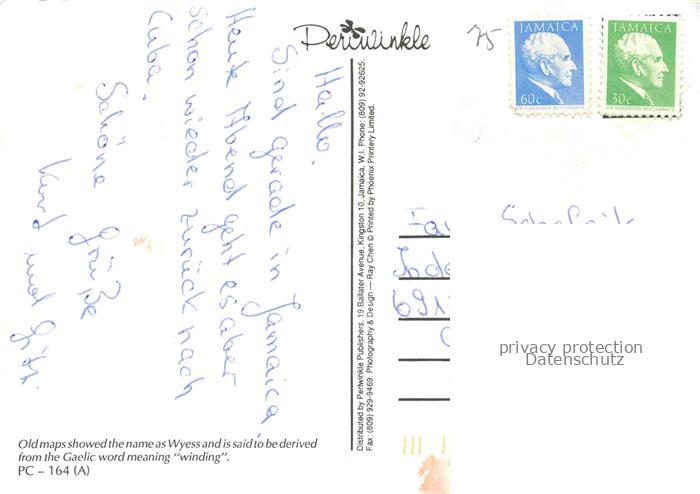 Periwinkle
75
JAMAICA
60c
SIR ALEXANDER BUSTAMANTE
JAMAICA
30c
SIR ALEXANDER BUSTAMANTE
Hallo.
Sind gerade in Jamaica,
Heute Abend geht es aber
schon wieder zurück nach
Cuba.
Schöne Grüße
Kurd und Gitti
Distributed by Periwinkle Publishers, 19 Ballater Avenue, Kingston 10, Jamaica, W.I. Phone: (809) 92-92625.
Fax: (809) 929-9469. Photography & Design — Ray Chen © Printed by Phoenix Printery Limited.
privacy protection
Datenschutz
Old maps showed the name as Wyess and is said to be derived
from the Gaelic word meaning "winding".
PC – 164 (A)